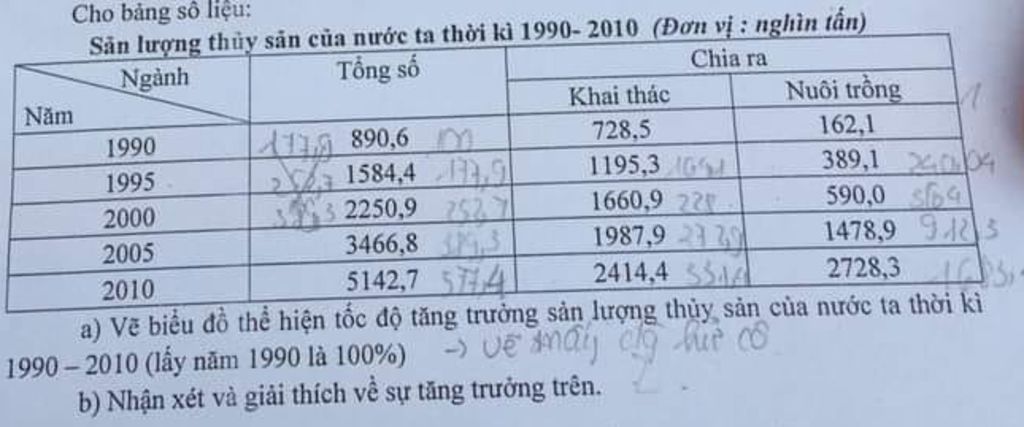 Cho bảng số liệu:
Sản lượng thủy sản của nước ta thời kì 1990- 2010 (Đơn vị : nghìn tấn)
Ngành Tổng số Chia ra
Năm Khai thác Nuôi trồng
1990 890,6 728,5 162,1
1995 1584,4 177,9 1195,3 389,1
2000 2250,9 252,7 1660,9 228 590,0
2005 3466,8 1987,9 1478,9 912,3
2010 5142,7 577,4 2414,4 2728,3
a) Vẽ biểu đồ thể hiện tốc độ tăng trưởng sản lượng thủy sản của nước ta thời kì
1990 – 2010 (lấy năm 1990 là 100%) → vẽ mấy
b) Nhận xét và giải thích về sự tăng trưởng trên.